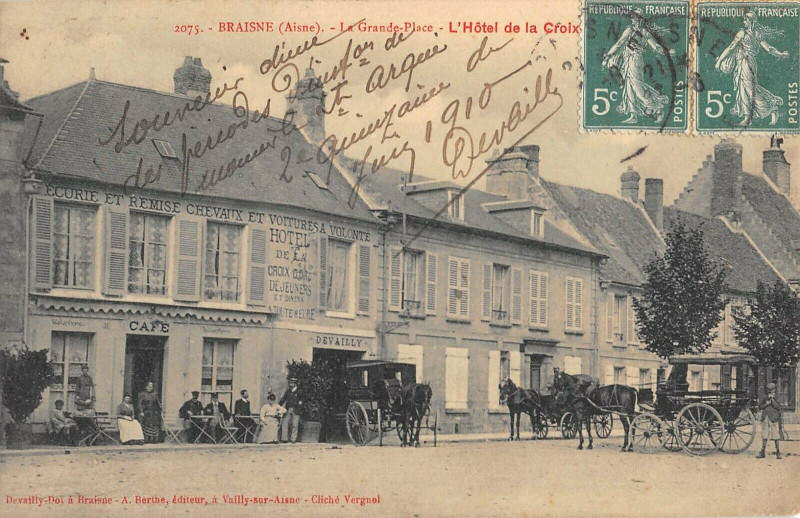 2075. - BRAISNE (Aisne). - La Grande-Place - L'Hôtel de la Croix
RÉPUBLIQUE FRANÇAISE
5c
POSTES
RÉPUBLIQUE FRANÇAISE
5c
POSTES
Souvenir d'une
des périodes
2e quinzaine de
1910
Devailly
ÉCURIE ET REMISE CHEVAUX ET VOITURES A VOLONTÉ
HÔTEL
DE LA
CROIX D'OR
DÉJEUNERS
ET DINERS
A TOUTE HEURE
CAFÉ
DEVAILLY
Devailly-Dot à Braisne - A. Berthe, éditeur, à Vailly-sur-Aisne - Cliché Vergnol